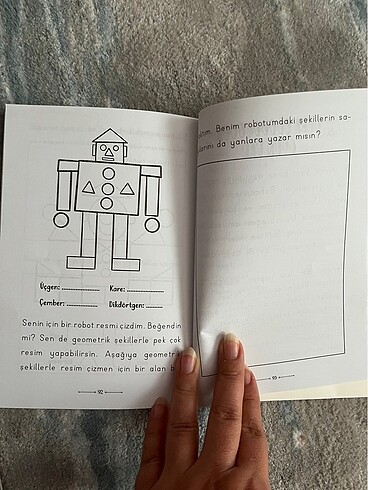 Üçgen:
Kare:
Çember:
Dikdörtgen:
Senin için bir robot resmi çizdim. Beğendin
mi? Sen de geometrik şekillerle pek çok
resim yapabilirsin. Aşağıya geometrik
şekillerle resim çizmen için bir alan
92
Benim robotumdaki şekillerin sa-
da yanlara yazar mısın?
93